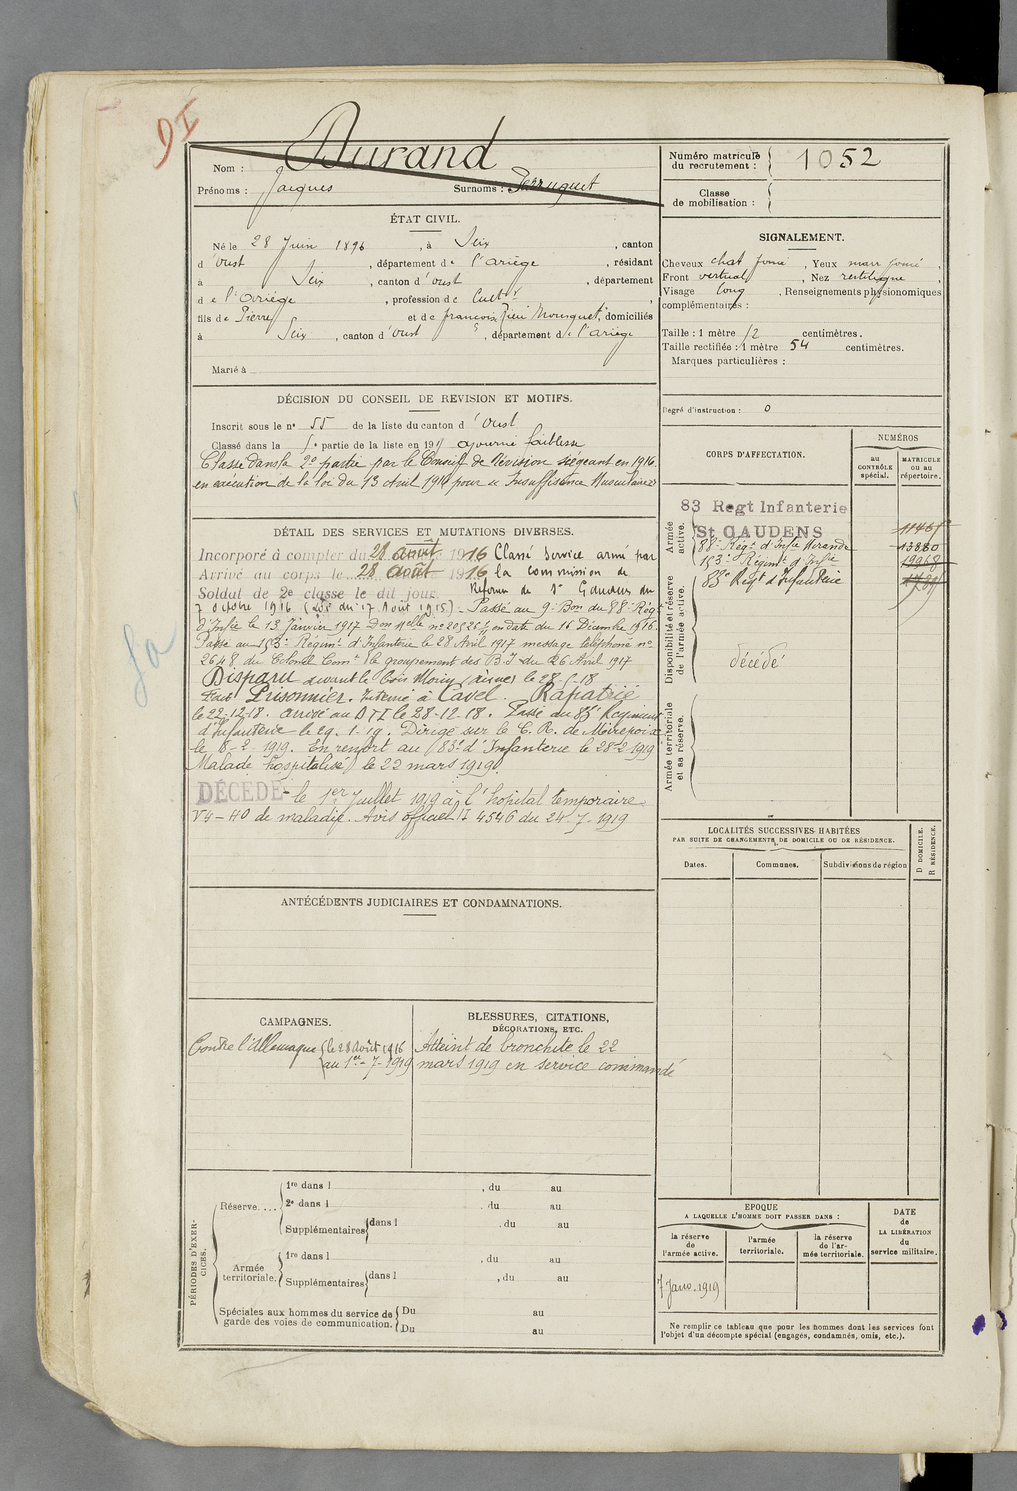 9I
Nom : Durand
Prénoms : Jacques Surnoms :
Numéro matricule
du recrutement : 1052
Classe
de mobilisation :
ÉTAT CIVIL.
Né le 28 Juin 1896, à Seix, canton
d'Oust, département de l'Ariège, résidant
à Seix, canton d'Oust, département
de l'Ariège, profession de Cultr
fils de Pierre et de françoise, domiciliés
à Seix, canton d'Oust, département de l'Ariège
Marié à
SIGNALEMENT.
Cheveux chat foncé, Yeux marr foncé,
Front vertical, Nez rectiligne,
Visage long, Renseignements physionomiques
complémentaires :
Taille : 1 mètre 52 centimètres.
Taille rectifiée : 1 mètre 54 centimètres.
Marques particulières :
Degré d'instruction : 0
DÉCISION DU CONSEIL DE REVISION ET MOTIFS.
Inscrit sous le n° 55 de la liste du canton d'Oust
Classé dans la 5e partie de la liste en 1915 ajourné faiblesse
Classé dans la 2e partie par le Conseil de Révision siégeant en 1916
en exécution de la loi du 13 Avril 1916 pour " Insuffisance Musculaire"
DÉTAIL DES SERVICES ET MUTATIONS DIVERSES.
Incorporé à compter du 28 août 1916 Classé Service armé par
Arrivé au corps le 28 août 1916 la commission de
Soldat de 2e classe le dit jour. Réforme de St Gaudens du
7 octobre 1916 (Loi du 17 Août 1915) - Passé au 9e Bon du 88e Régt
d'Infie le 13 Janvier 1917 Don Melle no en date du 16 Décembre 1916.
Passé au 153e Régimt d'Infanterie le 28 Avril 1917 message téléphoné no
2648 du Colonel Comt le groupement des B.I du 26 Avril 1917
Disparu devant le bois Morin (Aisne) le 28-5-18
Fait Prisonnier. Interné à Cavel. Rapatrié
le 22-12-18. Arrivé au D.T.I le 28-12-18. Passé du 83e Régiment
d'infanterie le 29-1-19. Dirigé sur le C. R. de Mirepoix
le 8-2-1919. En renfort au 83e d'Infanterie le 28-2-1919
Malade (hospitalisé) le 22 mars 1919.
DÉCÉDÉ - le 1er Juillet 1919 à l'hôpital temporaire
V4-40 de maladie. Avis officiel 4546 du 24-7-1919
CORPS D'AFFECTATION.
NUMÉROS
au
CONTRÔLE
spécial.
MATRICULE
ou au
répertoire.
Armée
active.
83 Regt Infanterie
St GAUDENS
88e Régt d'Infie 13880
153e Régimt d'Infie 19968
Disponibilité et réserve
de l'armée active.
83e Régt d'Infanterie
décédé
Armée territoriale
et sa réserve.
LOCALITÉS SUCCESSIVES HABITÉES
PAR SUITE DE CHANGEMENTS DE DOMICILE OU DE RÉSIDENCE.
Dates. Communes. Subdivisions de région
D DOMICILE.
R RÉSIDENCE.
ANTÉCÉDENTS JUDICIAIRES ET CONDAMNATIONS.
CAMPAGNES.
Contre l'Allemagne { le 28 Août 1916
au 1er-7-1919
BLESSURES, CITATIONS,
DÉCORATIONS, ETC.
Atteint de bronchite le 22
mars 1919 en service commandé
PÉRIODES D'EXERCICES.
Réserve....
1re dans l , du au
2e dans l , du au
Supplémentaires dans l , du au
Armée
territoriale.
1re dans l , du au
Supplémentaires dans l , du au
Spéciales aux hommes du service de
garde des voies de communication.
Du au
Du au
EPOQUE
A LAQUELLE L'HOMME DOIT PASSER DANS :
la réserve
de
l'armée active.
l'armée
territoriale.
la réserve
de l'ar-
mée territoriale.
DATE
de
LA LIBÉRATION
du
service militaire.
7 Janv. 1919
Ne remplir ce tableau que pour les hommes dont les services font
l'objet d'un décompte spécial (engagés, condamnés, omis, etc.).